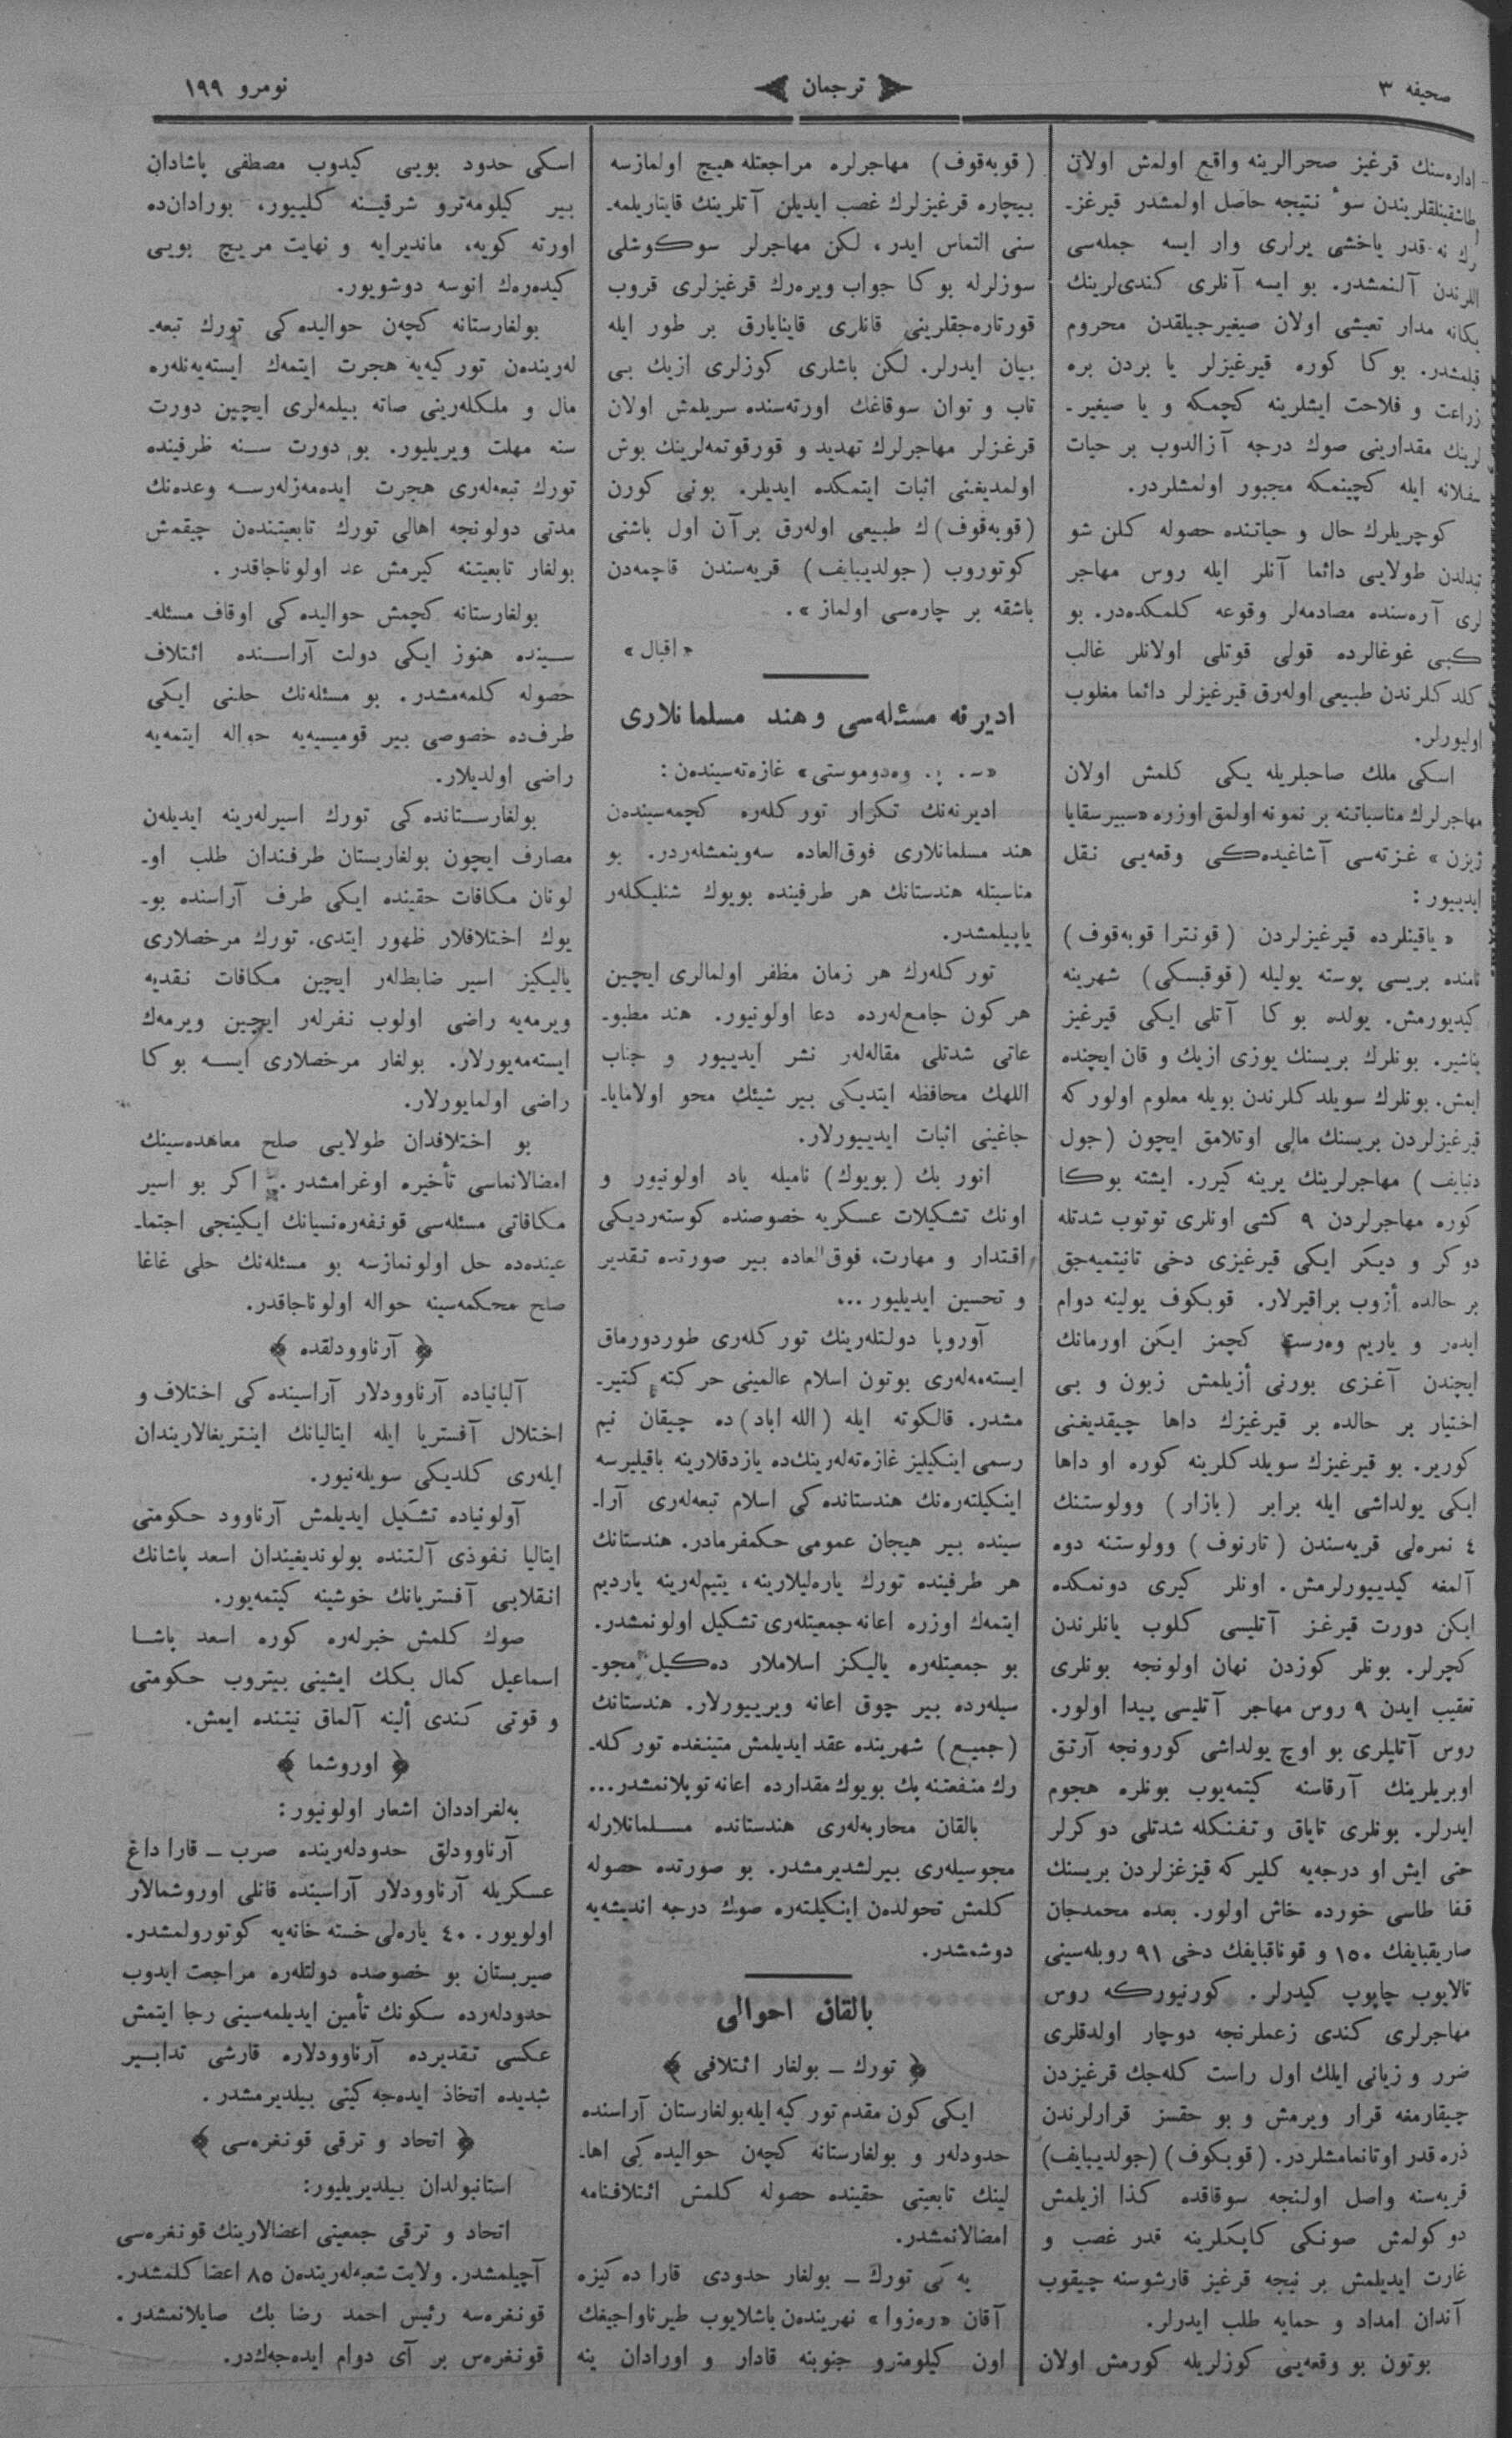 صحیفه ٣
ترجمان
نومرو ١٩٩
اداره‌سنك قرغیز صحرالرینه واقع اولمش اولان
طاشقینلقلریندن سوء نتیجه حاصل اولمشدر قیرغز-
رك نه قدر یاخشی یرلری وار ایسه جمله‌سی
اللرندن آلنمشدر. بو ایسه آنلری کندی‌لرینك
یکانه مدار تعیشی اولان صیغیرجیلقدن محروم
قیلمشدر. بو کا کوره قیرغیزلر یا بردن بره
زراعت و فلاحت ایشلرینه کچمکه و یا صیغیر-
لرینك مقدارینی صوك درجه آزالدوب بر حیات
سفلانه ایله کچینمکه مجبور اولمشلردر.
کوچریلرك حال و حیاتنده حصوله کلن شو
تبدلدن طولایی دائما آنلر ایله روس مهاجر
لری آره‌سنده مصادمه‌لر وقوعه کلمکده‌در. بو
کبی غوغالرده قولی قوتلی اولانلر غالب
کلدکلرندن طبیعی اوله‌رق قیرغیزلر دائما مغلوب
اولیورلر.
اسکی ملك صاحبلریله یکی کلمش اولان
مهاجرلرك مناسباتنه بر نمونه اولمق اوزره «سیبرسقایا
ژیزن» غزته‌سی آشاغیده‌کی وقعه‌یی نقل
ایدییور :
« یاقینلرده قیرغیزلردن ( قونترا قوبه‌قوف )
نامنده بریسی پوسته یولیله (قوقبسکی) شهرینه
کیدیورمش. یولده بو کا آتلی ایکی قیرغیز
یناشیر. بونلرك بریسنك یوزی ازیك و قان ایچنده
ایمش. بونلرك سویلدکلرندن بویله معلوم اولور که
قیرغیزلردن بریسنك مالی اوتلامق ایچون (جول
دنبایف ) مهاجرلرینك یرینه کیرر. ایشته بوکا
کوره مهاجرلردن ٩ کشی اونلری توتوب شدتله
دوکر و دیکر ایکی قیرغیزی دخی تانیتمیه‌جق
بر حالده أزوب براقیرلار. قوبکوف یولینه دوام
ایده‌ر و یاریم وه‌رست کچمز ایکن اورمانك
ایچندن آغزی بورنی أزیلمش زبون و بی
اختیار بر حالده بر قیرغیزك داها چیقدیغنی
کوریر. بو قیرغیزك سویلدکلرینه کوره او داها
ایکی یولداشی ایله برابر ( بازار ) وولوستنك
٤ نمره‌لی قریه‌سندن ( تارنوف ) وولوستنه دوه
آلمغه کیدییورلرمش. اونلر کیری دونمکده
ایکن دورت قیرغز آتلیسی کلوب یانلرندن
کچرلر. بونلر کوزدن نهان اولونجه بونلری
تعقیب ایدن ٩ روس مهاجر آتلیسی پیدا اولور.
روس آتلیلری بو اوچ یولداشی کورونجه آرتق
اوبریلرینك آرقاسنه کیتمه‌یوب بونلره هجوم
ایدرلر. بونلری تایاق و تفنکله شدتلی دوکرلر
حتی ایش او درجه‌یه کلیر که قیزغزلردن بریسنك
قفا طاسی خورده خاش اولور. بعده محمدجان
صاریقبایفك ١٥٠ و قوناقبایفك دخی ٩١ روبله‌سینی
تالایوب چاپوپ کیدرلر. کورنیورکه روس
مهاجرلری کندی زعملرنجه دوچار اولدقلری
ضرر و زیانی ایلك اول راست کله‌جك قرغیزدن
جیقارمغه قرار ویرمش و بو حقسز قرارلرندن
ذره قدر اوتانمامشلردر. (قوبکوف) (جولدیبایف)
قریه‌سنه واصل اولنجه سوقاقده کذا ازیلمش
دوکولمش صونکی کاپکلرینه قدر غصب و
غارت ایدیلمش بر نیجه قرغیز قارشوسنه چیقوب
آندان امداد و حمایه طلب ایدرلر.
بوتون بو وقعه‌یی کوزلریله کورمش اولان
( قوبه‌قوف ) مهاجرلره مراجعتله هیچ اولمازسه
بیچاره قرغیزلرك غصب ایدیلن آتلرینك قایتاریلمه-
سنی التماس ایدر، لکن مهاجرلر سوکوشلی
سوزلرله بوکا جواب ویره‌رك قرغیزلری قروب
قورتاره‌جقلرینی قانلری قاینایارق بر طور ایله
بیان ایدرلر. لکن باشلری کوزلری ازیك بی
تاب و توان سوقاغك اورته‌سنده سریلمش اولان
قرغزلر مهاجرلرك تهدید و قورقوتمه‌لرینك بوش
اولمدیغنی اثبات ایتمکده ایدیلر. بونی کورن
(قوبه‌قوف)ك طبیعی اوله‌رق برآن اول باشنی
کوتوروب (جولدیبایف) قریه‌سندن قاچمه‌دن
باشقه بر چاره‌سی اولماز ».
« اقبال »
ادیرنه مسئله‌سی و هند مسلمانلاری
« پ. وه‌دوموستی» غازه‌ته‌سیندەن :
ادیرنه‌نك تکرار تورکله‌ره کچمه‌سیندەن
هند مسلمانلاری فوق‌العاده سه‌وینمشله‌ردر. بو
مناسبتله هندستانك هر طرفینده بویوك شنلیکله‌ر
یاپیلمشدر.
تورکله‌رك هر زمان مظفر اولمالری ایچین
هرکون جامع‌له‌رده دعا اولونیور. هند مطبو-
عاتی شدتلی مقاله‌له‌ر نشر ایدییور و جناب
اللهك محافظه ایتدیکی بیر شیئك محو اولامایا-
جاغینی اثبات ایدییورلار.
انور بك (بویوك) نامیله یاد اولونیور و
اونك تشکیلات عسکریه خصوصنده کوسته‌ردیکی
اقتدار و مهارت، فوق‌العاده بیر صورتده تقدیر
و تحسین ایدیلیور ...
آوروپا دولتله‌رینك تورکله‌ری طوردورماق
ایسته‌مه‌له‌ری بوتون اسلام عالمینی حرکته کتیر-
مشدر. قالکوته ایله (الله اباد)ده چیقان نیم
رسمی اینکیلیز غازه‌ته‌له‌رینك‌ده یازدقلارینه باقیلیرسه
اینکیلته‌ره‌نك هندستانده‌کی اسلام تبعه‌له‌ری آرا-
سینده بیر هیجان عمومی حکمفرمادر. هندستانك
هر طرفینده تورك یاره‌لیلارینه، یتیم‌له‌رینه یاردیم
ایتمه‌ك اوزره اعانه جمعیتله‌ری تشکیل اولونمشدر.
بو جمعیتله‌ره یالیکز اسلاملار ده‌کیل مجو-
سیله‌رده بیر چوق اعانه ویرییورلار. هندستانك
(جمیع) شهرینده عقد ایدیلمش متینغده تورکله-
رك منفعتنه بك بویوك مقدارده اعانه توپلانمشدر...
بالقان محاربه‌له‌ری هندستانده مسلمانلارله
مجوسیله‌ری بیرلشدیرمشدر. بو صورتده حصوله
کلمش تحولدەن اینکیلته‌ره صوك درجه اندیشه‌یه
دوشمشدر.
بالقان احوالی
﴿ تورك — بولغار ائتلافی ﴾
ایکی کون مقدم تورکیه ایله بولغارستان آراسنده
حدودله‌ر و بولغارستانه کچەن حوالیده کی اها-
لینك تابعیتی حقینده حصوله کلمش ائتلافنامه
امضالانمشدر.
یه کی تورك — بولغار حدودی قارا ده کیزه
آقان «ره‌زوا» نهریندەن باشلایوب طیرناواجیغك
اون کیلومترو جنوبنه قادار و اورادان ینه
اسکی حدود بویی کیدوب مصطفی پاشادان
بیر کیلومه‌ترو شرقینه کلییور، بورادان‌ده
اورته کویه، ماندیرایه و نهایت مریچ بویی
کیده‌ره‌ك انوسه دوشویور.
بولغارستانه کچەن حوالیده‌کی تورك تبعه-
له‌ریندەن تورکیه‌یه هجرت ایتمه‌ك ایسته‌یه‌نله‌ره
مال و ملکله‌رینی صاته بیلمه‌لری ایچین دورت
سنه مهلت ویریلیور. بو دورت سنه ظرفینده
تورك تبعه‌له‌ری هجرت ایده‌مه‌زله‌رسه وعده‌نك
مدتی دولونجه اهالی تورك تابعیتندەن چیقمش
بولغار تابعیتنه کیرمش عد اولوناجاقدر.
بولغارستانه کچمش حوالیده کی اوقاف مسئله-
سینده هنوز ایکی دولت آراسنده ائتلاف
حصوله کلمه‌مشدر. بو مسئله‌نك حلنی ایکی
طرف‌ده خصوصی بیر قومیسیه‌یه حواله ایتمه‌یه
راضی اولدیلار.
بولغارستانده کی تورك اسیرله‌رینه ایدیلەن
مصارف ایچون بولغاریستان طرفندان طلب او-
لونان مکافات حقینده ایکی طرف آراسنده بو-
یوك اختلافلار ظهور ایتدی. تورك مرخصلاری
یالیکیز اسیر ضابطله‌ر ایچین مکافات نقدیه
ویرمه‌یه راضی اولوب نفرله‌ر ایچین ویرمه‌ك
ایسته‌مه‌یورلار. بولغار مرخصلاری ایسه بوکا
راضی اولمایورلار.
بو اختلافدان طولایی صلح معاهده‌سینك
امضالانماسی تأخیره اوغرامشدر. اکر بو اسیر
مکافاتی مسئله‌سی قونفه‌ره‌نسیانك ایکینجی اجتما-
عینده‌ده حل اولونمازسه بو مسئله‌نك حلی غاغا
صلح محکمه‌سینه حواله اولوناجاقدر.
﴿ آرناوودلقده ﴾
آلبانیاده آرناوودلار آراسینده کی اختلاف و
اختلال آفستریا ایله ایتالیانك اینتریغالاریندان
ایله‌ری کلدیکی سویله‌نیور.
آولونیاده تشکیل ایدیلمش آرناوود حکومتی
ایتالیا نفوذی آلتنده بولوندیغیندان اسعد پاشانك
انقلابی آفستریانك خوشینه کیتمه‌یور.
صوك کلمش خبرله‌ره کوره اسعد پاشا
اسماعیل کمال بکك ایشینی بیتروب حکومتی
و قوتی کندی ألینه آلماق نیتنده ایمش.
﴿ اوروشما ﴾
به‌لغراددان اشعار اولونیور:
آرناوودلق حدودله‌رینده صرب — قارا داغ
عسکریله آرناوودلار آراسینده قانلی اوروشمالار
اولویور. ٤٠ یاره‌لی خسته خانه‌یه کوتورولمشدر.
صیربستان بو خصوصده دولتله‌ره مراجعت ایدوب
حدودله‌رده سکونك تأمین ایدیلمه‌سینی رجا ایتمش
عکسی تقدیرده آرناوودلاره قارشی تدابیر
شدیده اتخاذ ایده‌جه کینی بیلدیرمشدر.
﴿ اتحاد و ترقی قونغره‌سی ﴾
استانبولدان بیلدیریلیور:
اتحاد و ترقی جمعیتی اعضالارینك قونغره‌سی
آچیلمشدر. ولایت شعبه‌له‌ریندەن ٨٥ اعضا کلمشدر.
قونغره‌سه رئیس احمد رضا بك صایلانمشدر.
قونغره‌س بر آی دوام ایده‌جه‌ك‌در.